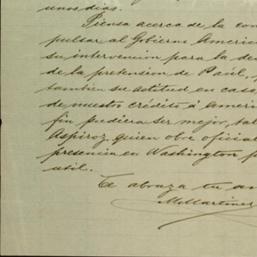 unos dias.
Piensa acerca de la con
pulsar al Gobierno America
su intervencion para la de
de la pretension de Paúl,
tambien su actitud en caso
de nuestro crédito á Ameri
fin pudiera ser mejor, tal
Aspiroz quien obre oficia
presencia en Washington p
util.
Te abraza tu am
M. Martinez